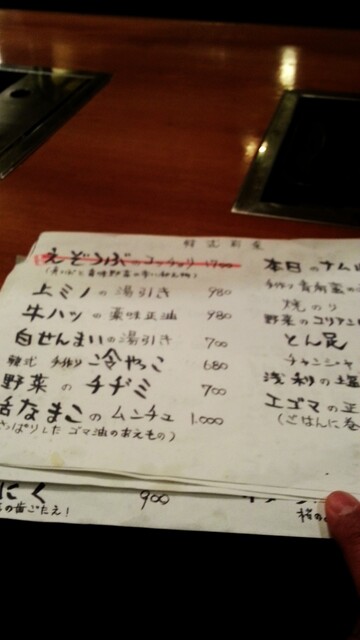 韓流前菜
えぞつぶのコッチョリ 900
上ミノの湯引き 980
牛ハツの薬味正油 980
白せんまいの湯引き 700
韓式 手作り 冷やっこ 680
野菜のチヂミ 700
活なまこのムンチュ 1,000
さっぱりしたゴマ油のあえもの)
にく 900
の歯ごたえ!
本日のナムル
手作り青唐薬の
焼のり
野菜のコリアン
とん足
チャンジャ
浅利の土
エゴマの正
(ごはんに巻